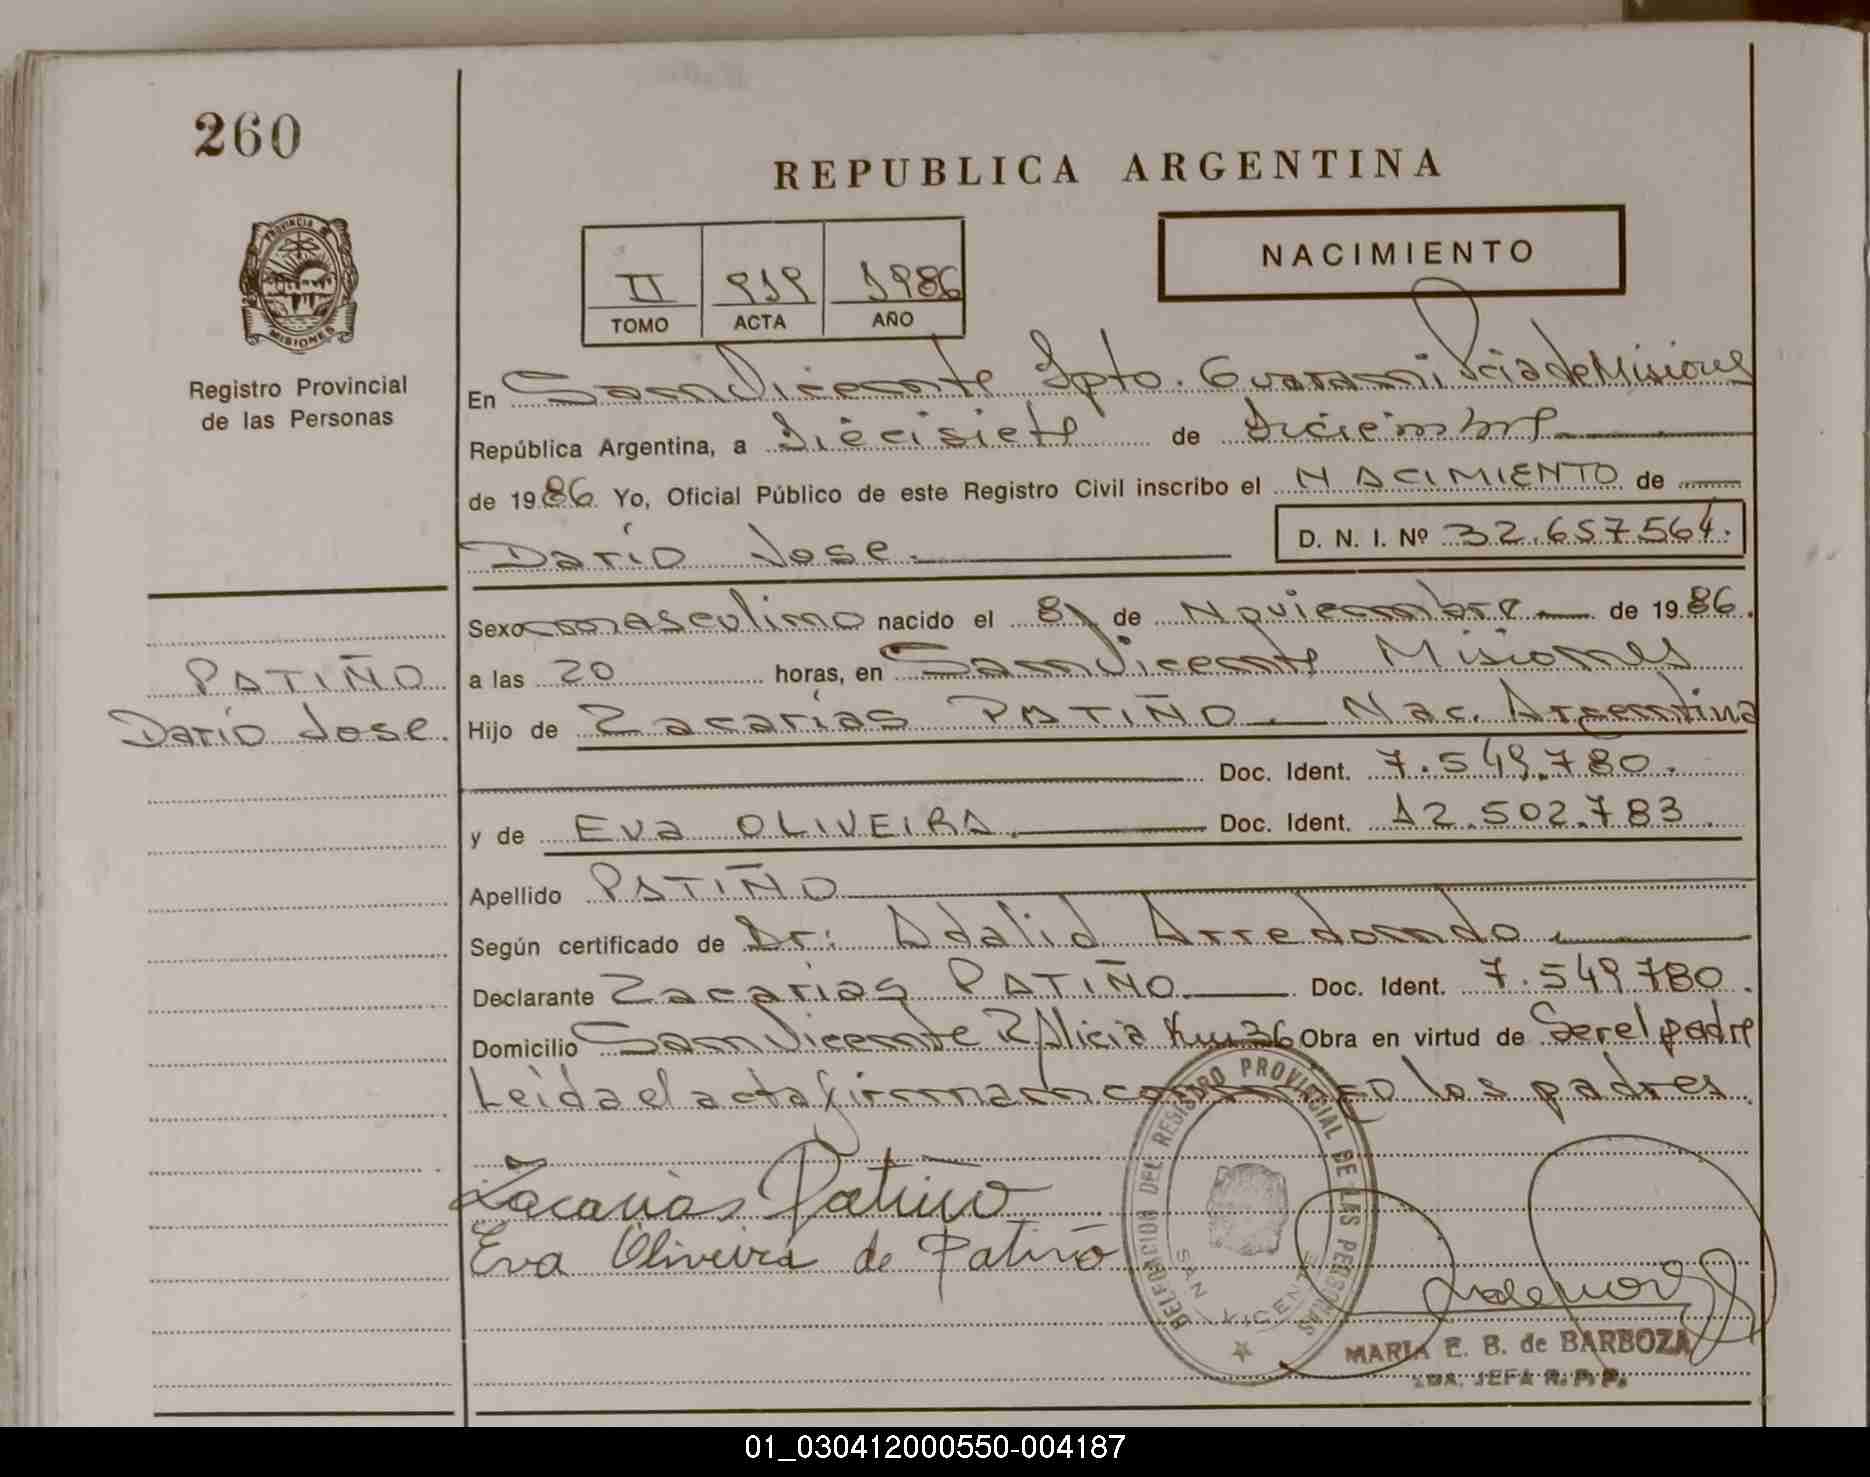 260
REPUBLICA ARGENTINA
NACIMIENTO
II 919 1986
TOMO ACTA AÑO
PROVINCIA DE MISIONES
Registro Provincial
de las Personas
En San Vicente Dpto. Guarani Pcia de Misiones
República Argentina, a Diecisiete de Diciembre
de 1986. Yo, Oficial Público de este Registro Civil inscribo el NACIMIENTO de
Darío Jose. D. N. I. Nº 32.657.564.
Sexo masculino nacido el 8 de Noviembre de 1986.
a las 20 horas, en San Vicente Misiones
PATIÑO
Darío Jose.
Hijo de Zacarías PATIÑO. Nac. Argentina
Doc. Ident. 7.549.780.
y de Eva OLIVEIRA. Doc. Ident. 12.502.783.
Apellido PATIÑO
Según certificado de Dr: Adalid Arredondo.
Declarante Zacarias PATIÑO. Doc. Ident. 7.549.780.
Domicilio San Vicente R/Alicia Km 36 Obra en virtud de Ser el padre
Leída el acta firman conmigo los padres.
Zacarias Patiño
Eva Oliveira de Patiño
DELEGACION DEL REGISTRO PROVINCIAL DE LAS PERSONAS
SAN VICENTE
MARIA E. B. de BARBOZA
2DA. JEFA R. P. P.
01_030412000550-004187